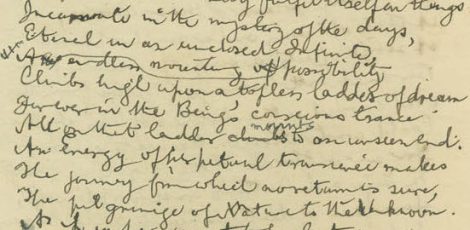 fulfil itself in things
Incarnate in the mystery of the days,
Eternal in an unclosed Infinite,
endless mounting possibility
Climbs high upon a topless ladder of dream
For ever in the Being's conscious trance.
All on that ladder mounts to an unseen end.
An Energy of perpetual transience makes
The journey from which no return is sure,
The pilgrimage of Nature to the Unknown.